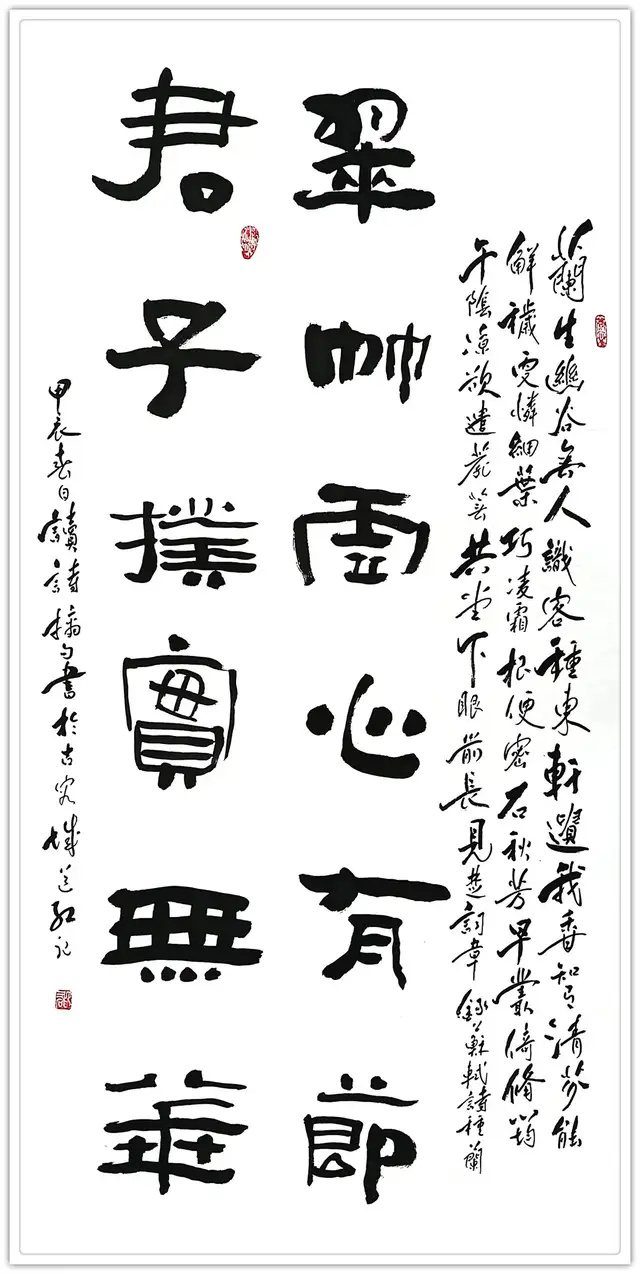 蘭生幽谷無人識客種東軒遺我香知有清芬能
解穢更憐細葉巧凌霜根便密石秋芳早叢倚脩筠
午蔭涼欲遣蘼蕪共堂下眼前長見楚詞章 錄蘇軾詩種蘭
翠竹虛心有節
君子撲實無華
甲辰春日讀詩摘句書於古城記